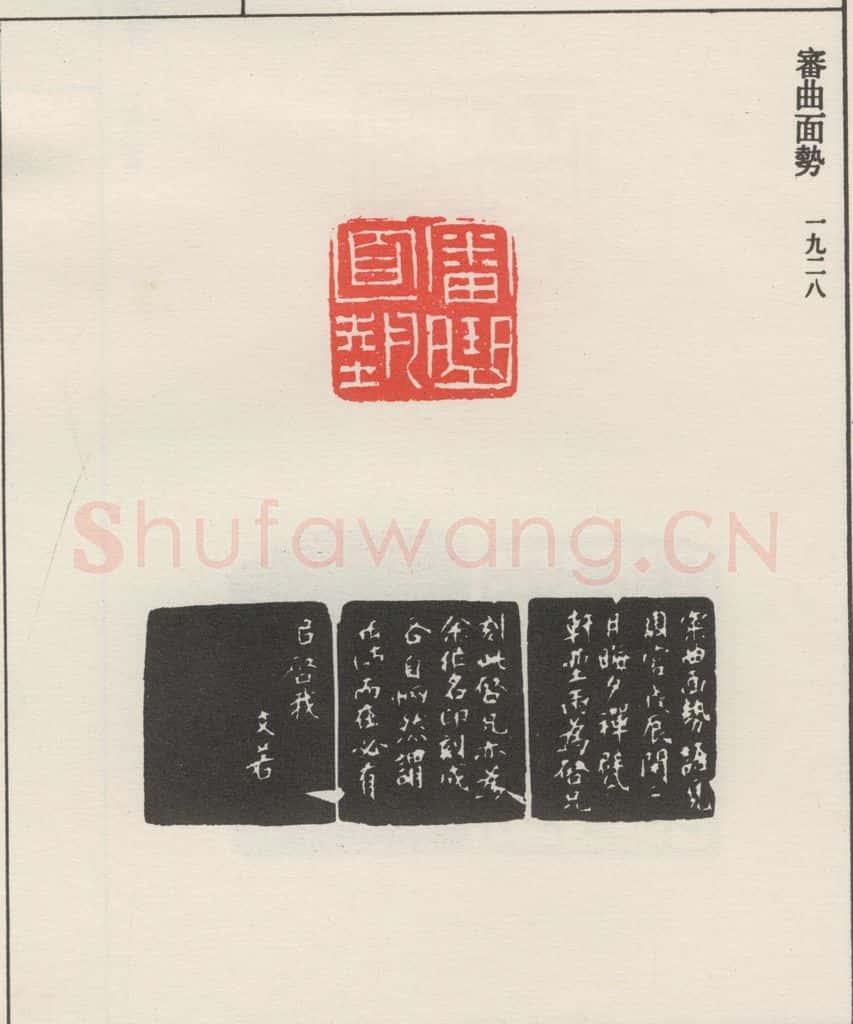 審曲面勢 一九二八
審曲面勢
Shufawang.CN
審曲面勢語見
周官戊辰閏二
月晦夕禪甓
軒坐雨為啓兄
刻此啓兄亦為
余作名印刻成
各自惘然謂
必有
以啓我
文若